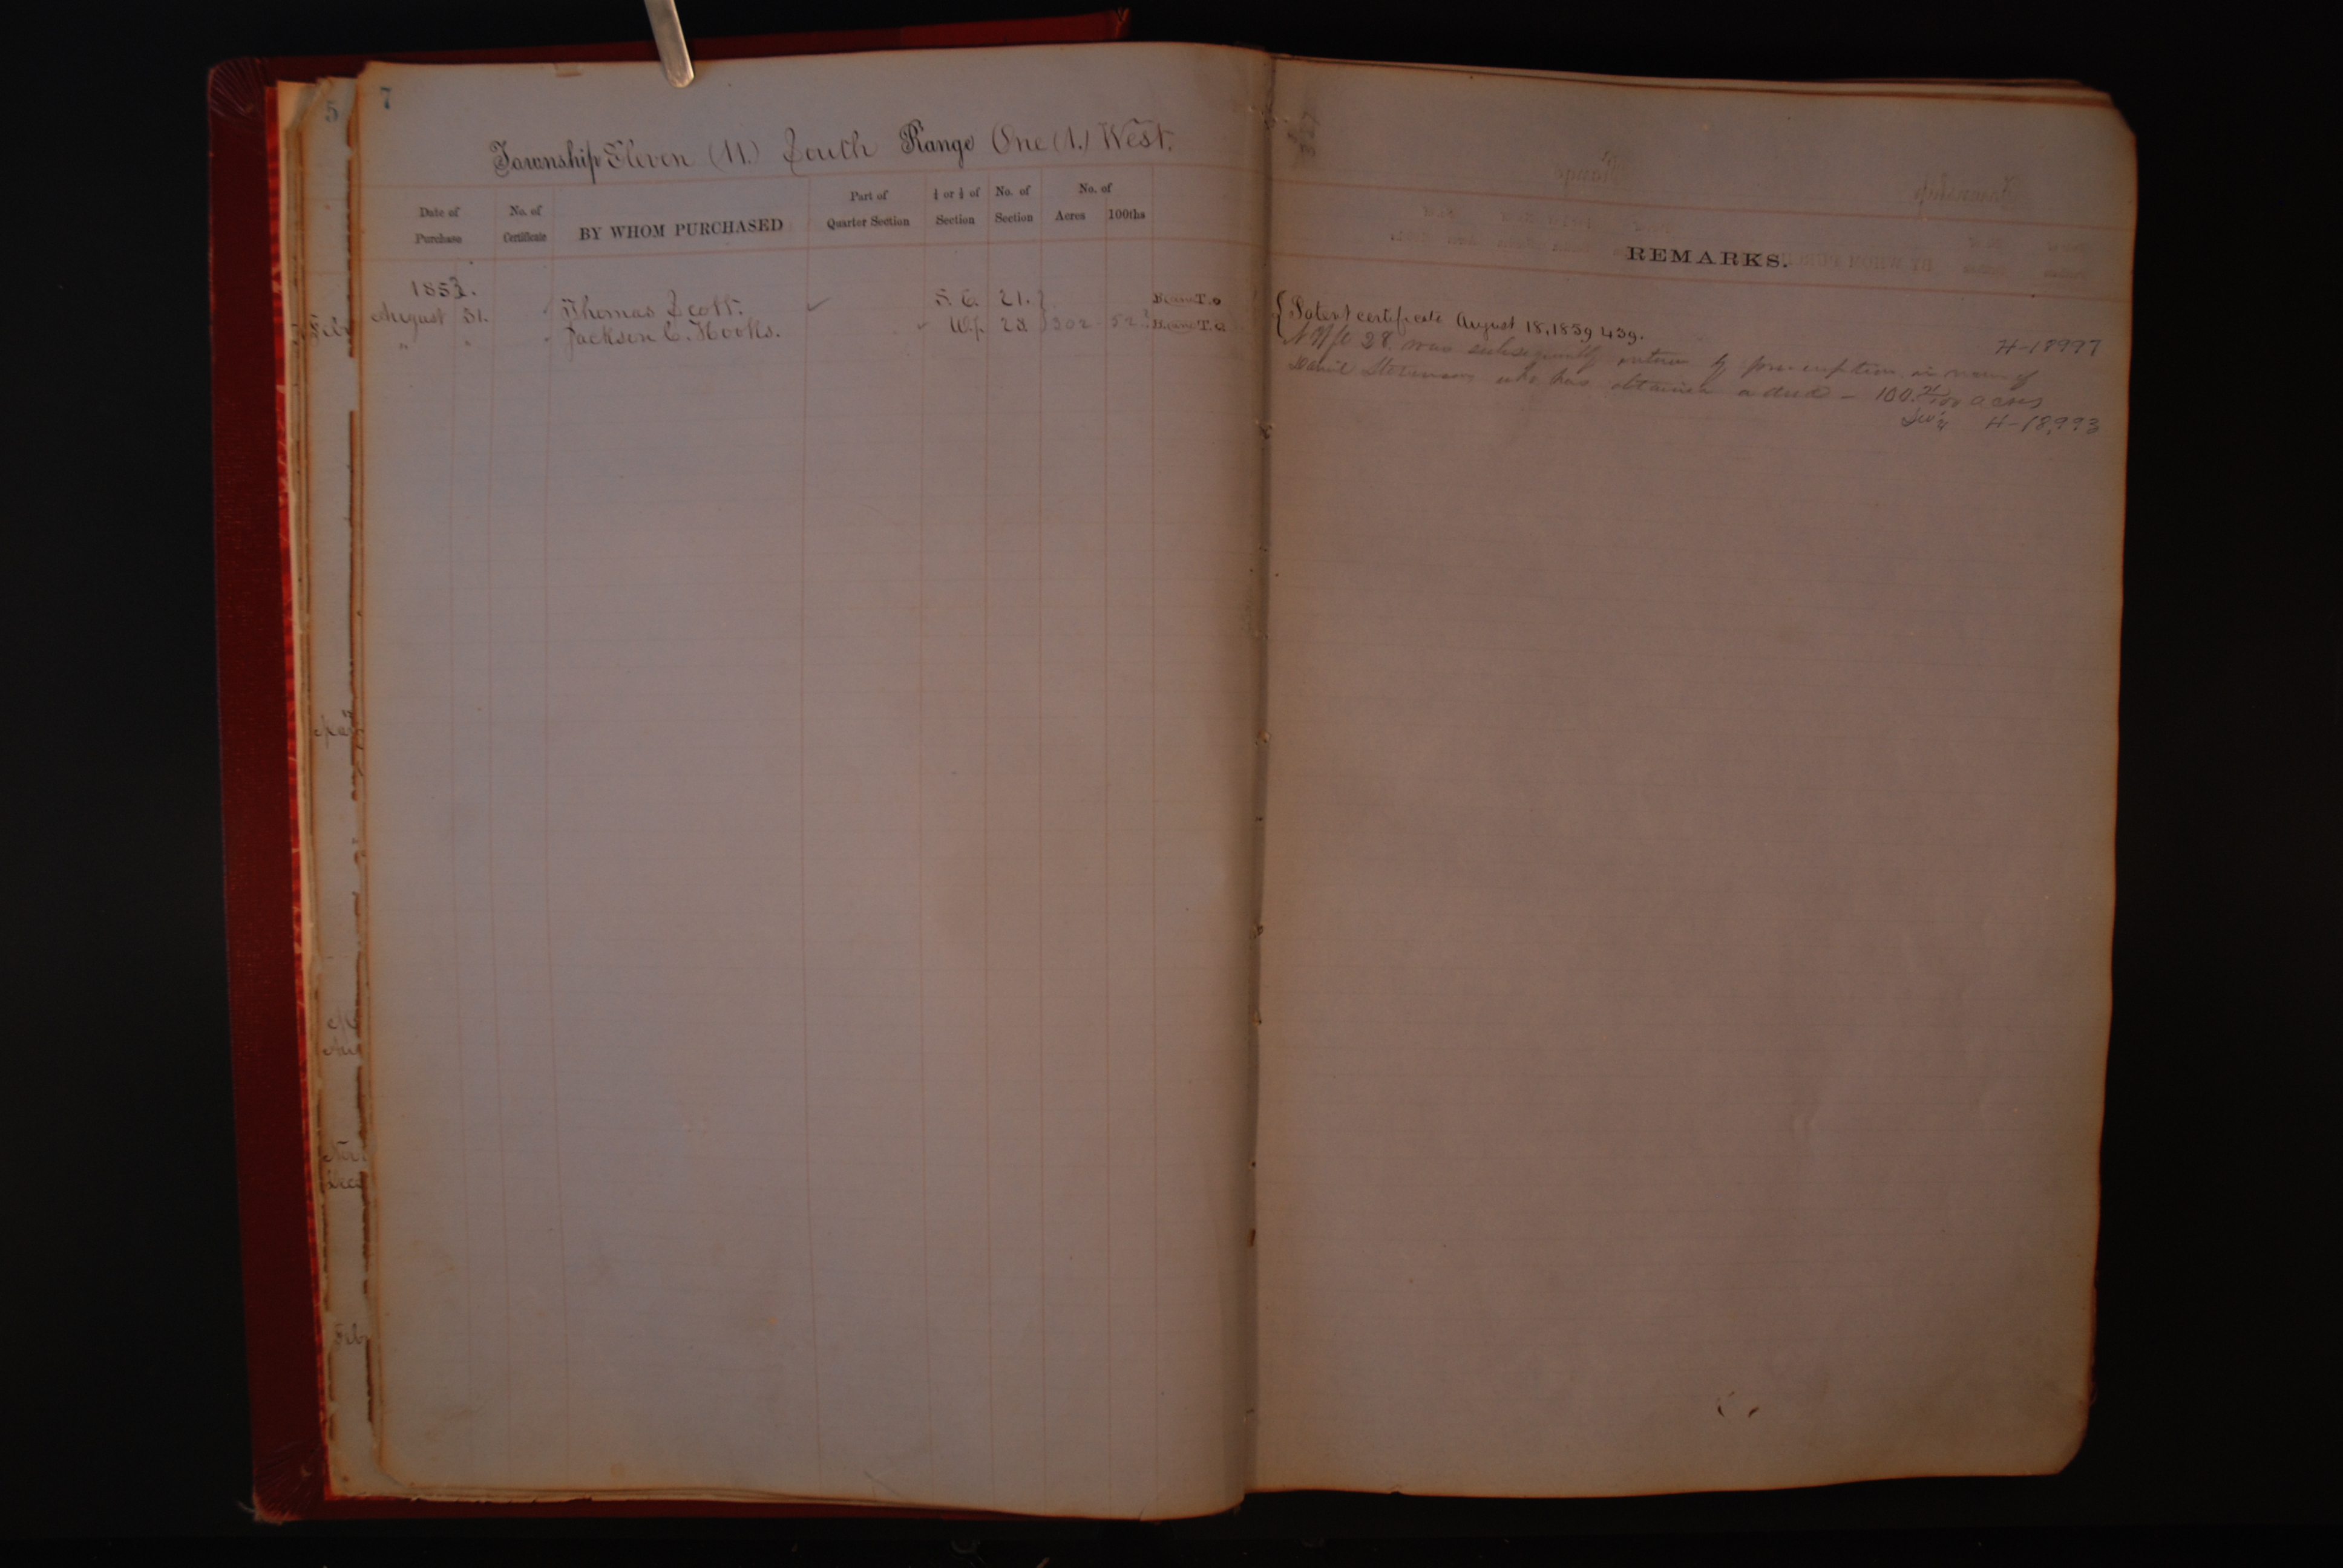 5 7
Township Eleven (11.) South Range One (1.) West.
Date of Purchase No. of Certificate BY WHOM PURCHASED Part of Quarter Section ½ or ¼ of Section No. of Section No. of Acres 100ths
1853.
August 31. Thomas Scott. S. E. 21.
" " Jackson C. Hooks. W½ 28 302 52
Feb
Nov
Dece
Feb
REMARKS.
Patent certificate August 18, 1859 439.
H-18997
28 was subsequently entered by pre-emption in name of
Stevenson who has obtained a deed - 100 acres
H-18,993